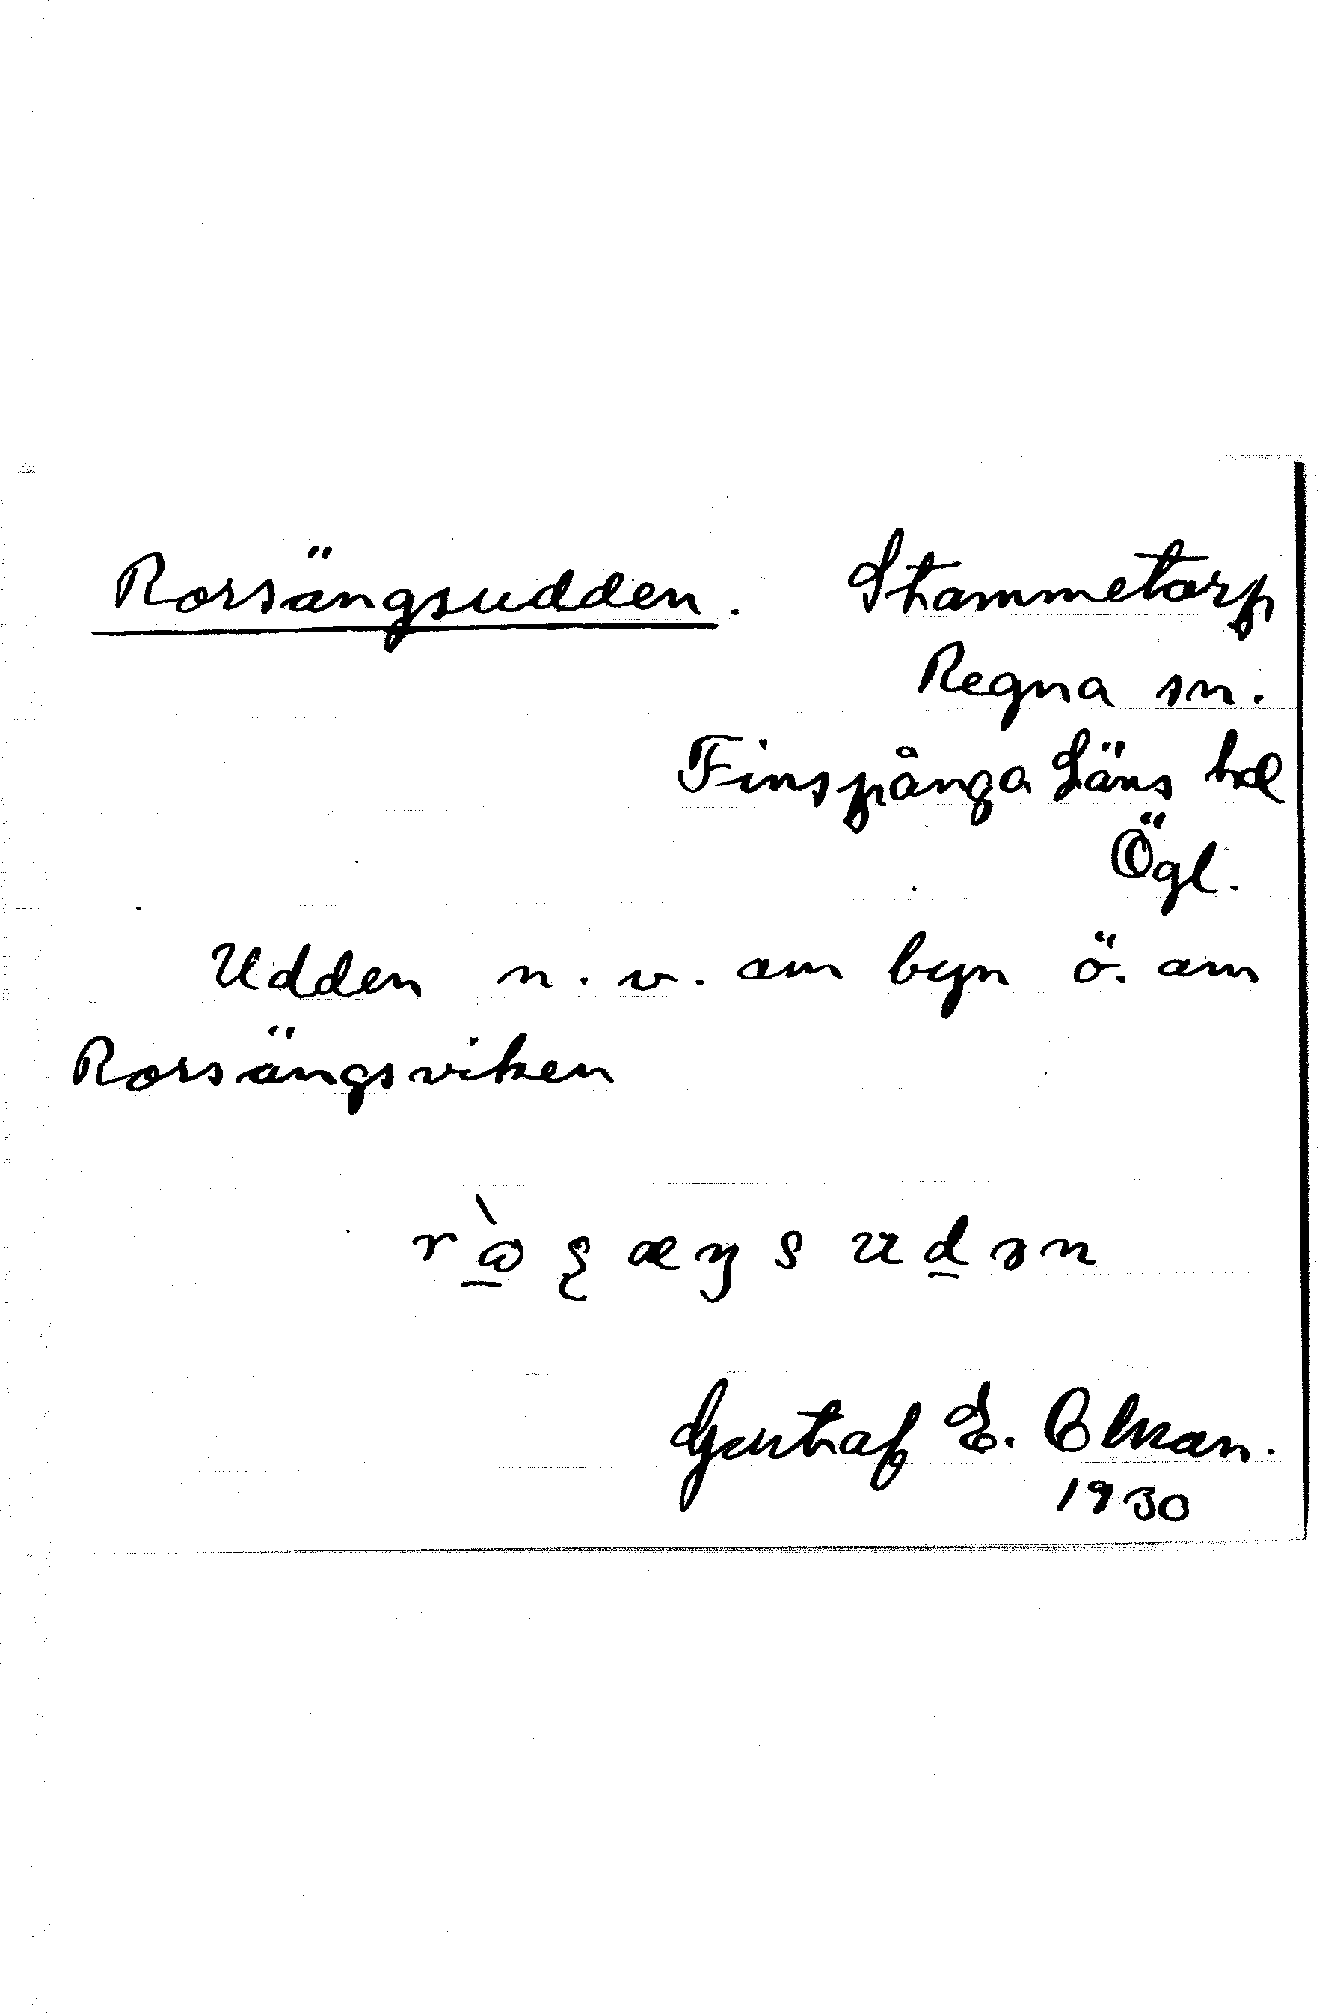 Rorsängsudden. Stammetorp
Regna sn.
Finspånga Läns hd
Ögl.
Udden n.v. om byn ö. om
Rorsängsviken
Gustaf E. Olsson.
1930